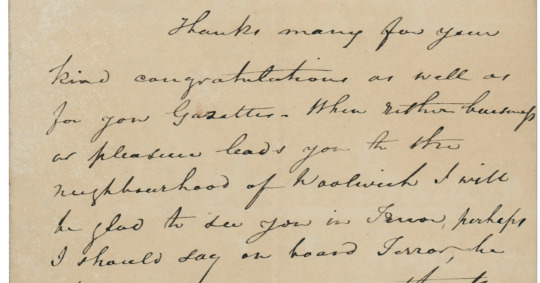 Thanks many for your
kind congratulations as well as
for your Gazette - When either business
or pleasure leads you to the
neighbourhood of Woolwich I will
be glad to see you in Terror, perhaps
I should say on board Terror, he